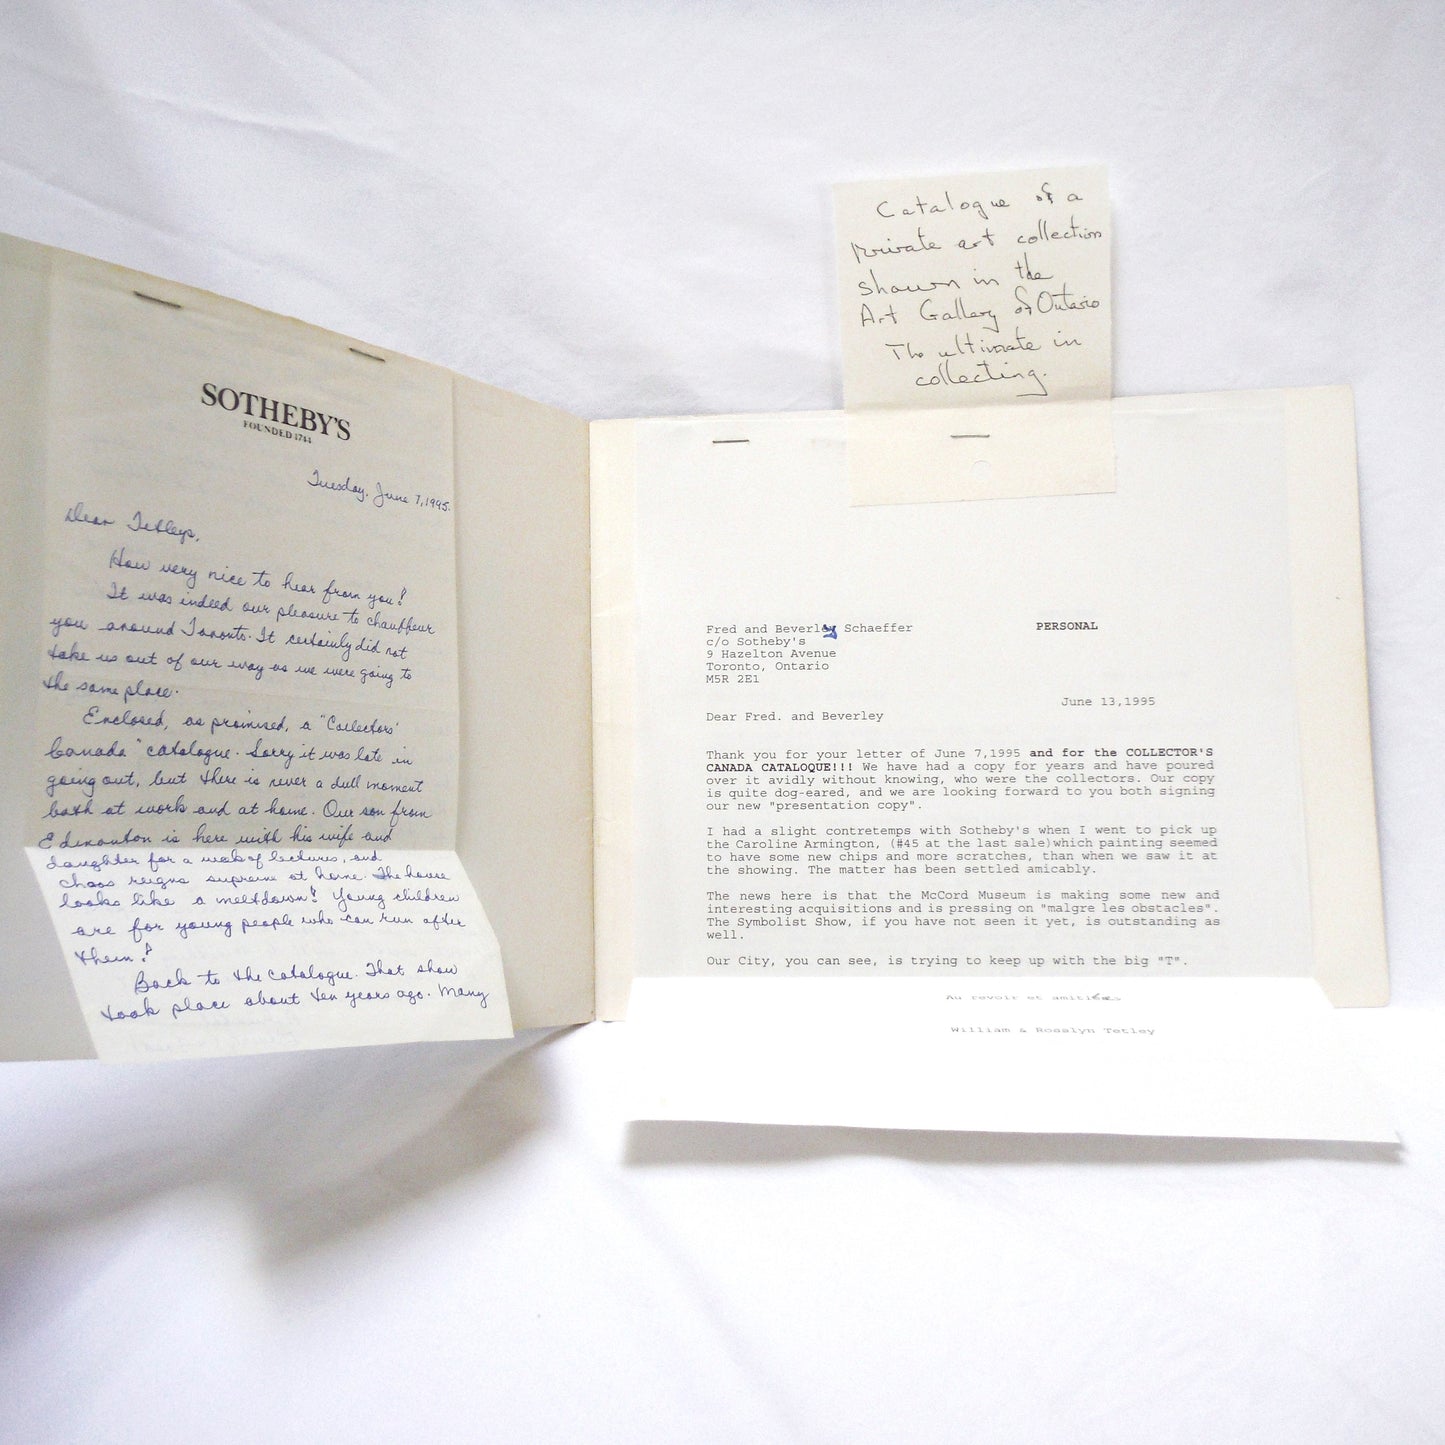 SOTHEBY'S
FOUNDED 1744
Tuesday, June 7, 1995.
Dear Tetleys,
How very nice to hear from you!
It was indeed our pleasure to chauffeur
you around Toronto. It certainly did not
take us out of our way as we were going to
the same place.
Enclosed, as promised, a "Collectors'
Canada" catalogue. Sorry it was late in
going out, but there is never a dull moment
both at work and at home. Our son from
Edmonton is here with his wife and
daughter for a week of lectures, and
chaos reigns supreme at home. The house
looks like a meltdown! Young children
are for young people who can run after
them!
Back to the catalogue. That show
took place about ten years ago. Many
Catalogue of a
private art collection
shown in the
Art Gallery of Ontario
The ultimate in
collecting.
Fred and Beverley Schaeffer
PERSONAL
c/o Sotheby's
9 Hazelton Avenue
Toronto, Ontario
M5R 2E1
June 13,1995
Dear Fred. and Beverley
Thank you for your letter of June 7,1995 and for the COLLECTOR'S
CANADA CATALOGUE!!! We have had a copy for years and have poured
over it avidly without knowing, who were the collectors. Our copy
is quite dog-eared, and we are looking forward to you both signing
our new "presentation copy".
I had a slight contretemps with Sotheby's when I went to pick up
the Caroline Armington, (#45 at the last sale)which painting seemed
to have some new chips and more scratches, than when we saw it at
the showing. The matter has been settled amicably.
The news here is that the McCord Museum is making some new and
interesting acquisitions and is pressing on "malgre les obstacles".
The Symbolist Show, if you have not seen it yet, is outstanding as
well.
Our City, you can see, is trying to keep up with the big "T".
Au revoir et amitiés
William & Rosslyn Tetley